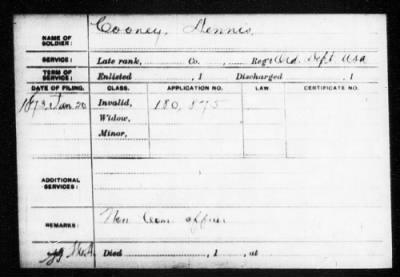 NAME OF SOLDIER: Cooney, Dennis
SERVICE: Late rank, Co., Reg't Ord. Dept. USA
TERM OF SERVICE: Enlisted , 1 Discharged , 1
DATE OF FILING. CLASS. APPLICATION NO. LAW. CERTIFICATE NO.
Jan 20 Invalid, 180,875
Widow,
Minor,
ADDITIONAL SERVICES:
REMARKS: Non Com. officer
Died , 1 , at